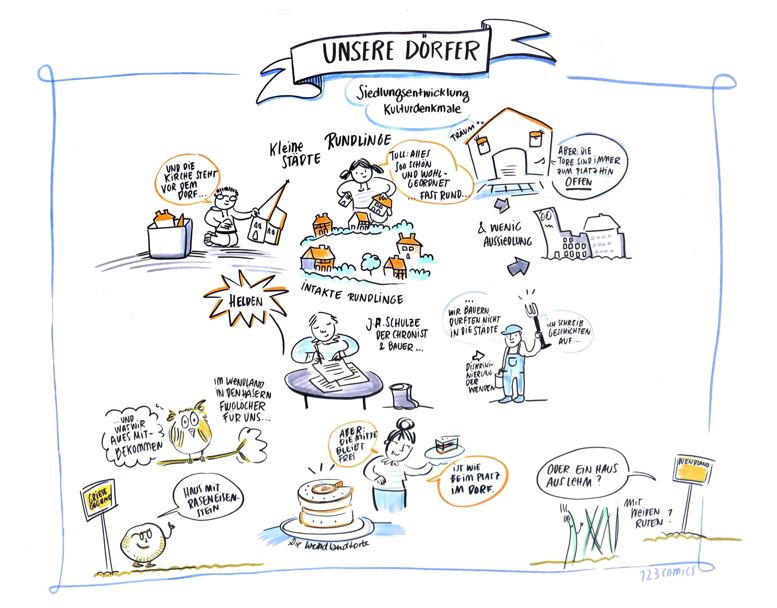 UNSERE DÖRFER
Siedlungsentwicklung
Kulturdenkmale
Kleine
STÄDTE
RUNDLINGE
UND DIE
KIRCHE STEHT
VOR DEM
DORF...
TOLL: ALLES
SOO SCHÖN
UND WOHL-
GEORDNET
... FAST RUND...
TRÄUM..
ABER: DIE
TORE SIND IMMER
ZUM PLATZ HIN
OFFEN
& WENIG
AUSSIEDLUNG
INTAKTE RUNDLINGE
HELDEN
J.P. SCHULZE
DER CHRONIST
& BAUER...
...
WIR BAUERN
DURFTEN NICHT
IN DIE STÄDTE
ICH SCHREIB
GESCHICHTEN
AUF...
DISKRIMI-
NIERUNG
DER
WENDEN
...UND
WAS WIR
ALLES MIT-
BEKOMMEN
IM WENDLAND
IN DEN HÄSERN
FLUGLÖCHER
FÜR UNS...
ABER:
DIE MITTE
BLEIBT
FREI
IST WIE
BEIM PLATZ
IM DORF.
Die Wendlandtorte
HAUS MIT
RASENEISEN-
STEIN
ODER EIN HAUS
AUS LEHM?
MIT
WEIDEN
RUTEN?
WENDLAND
123comics